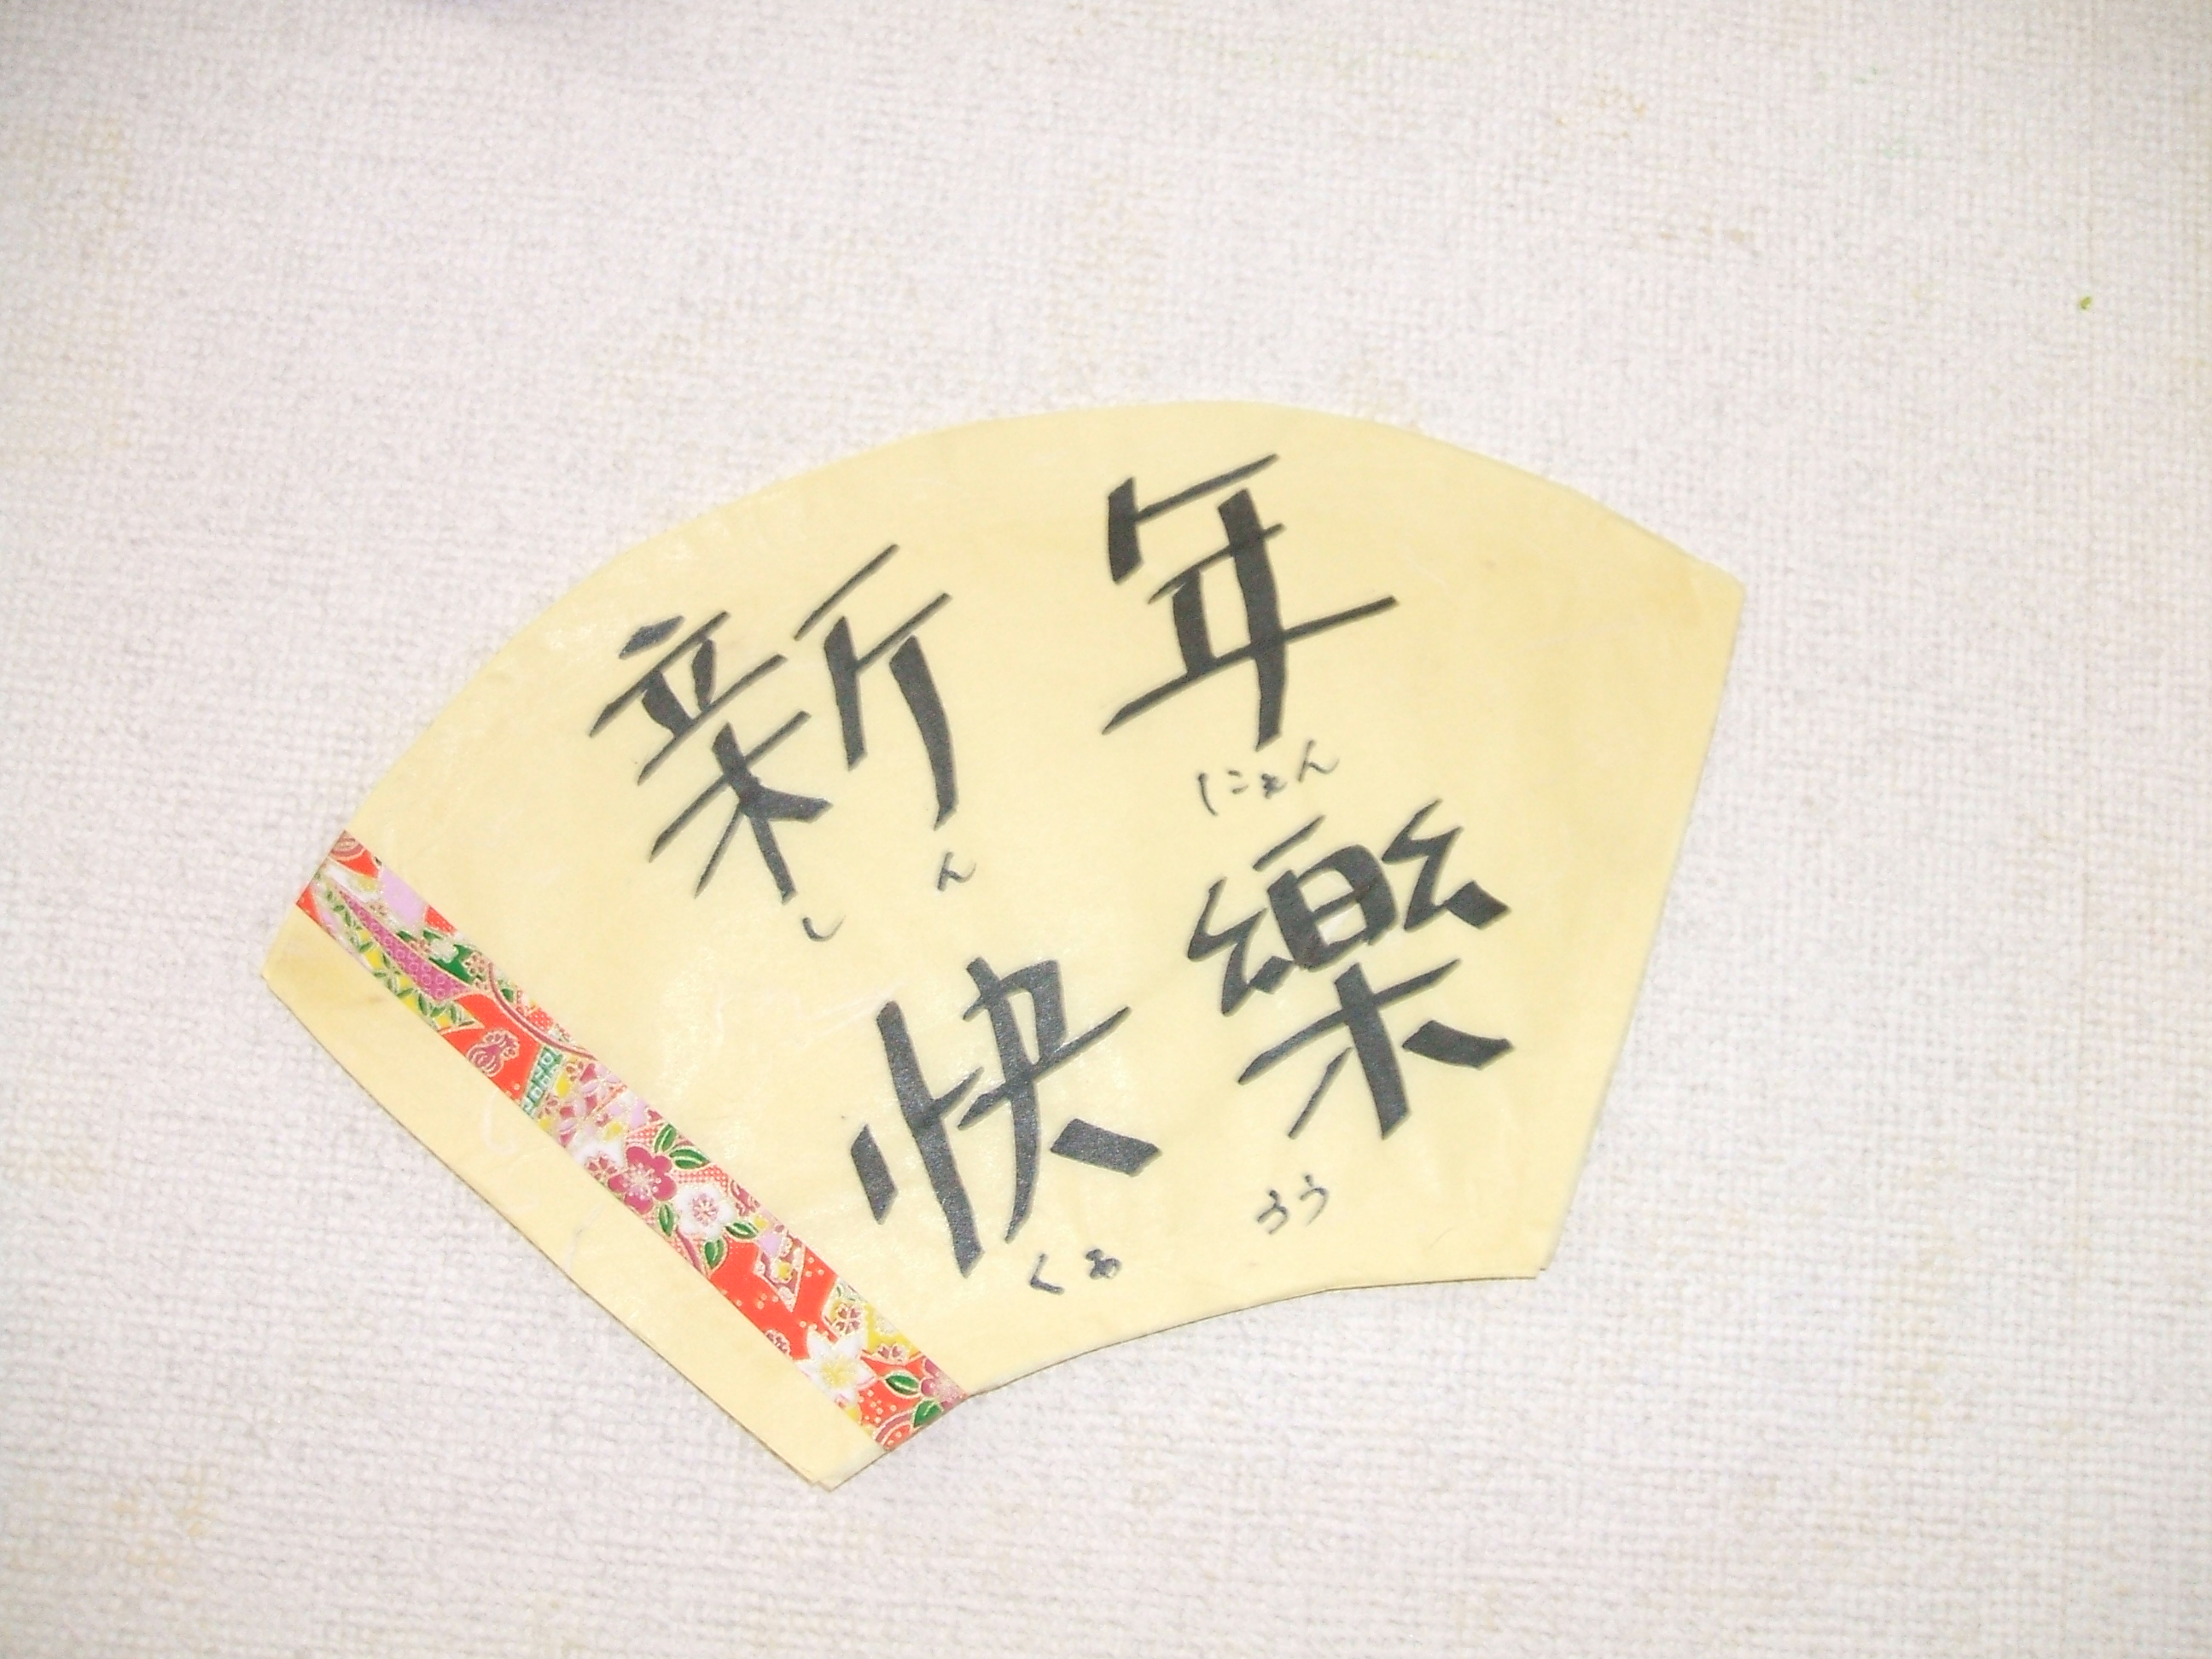 新年
しん にぇん
快樂
くあ ろう